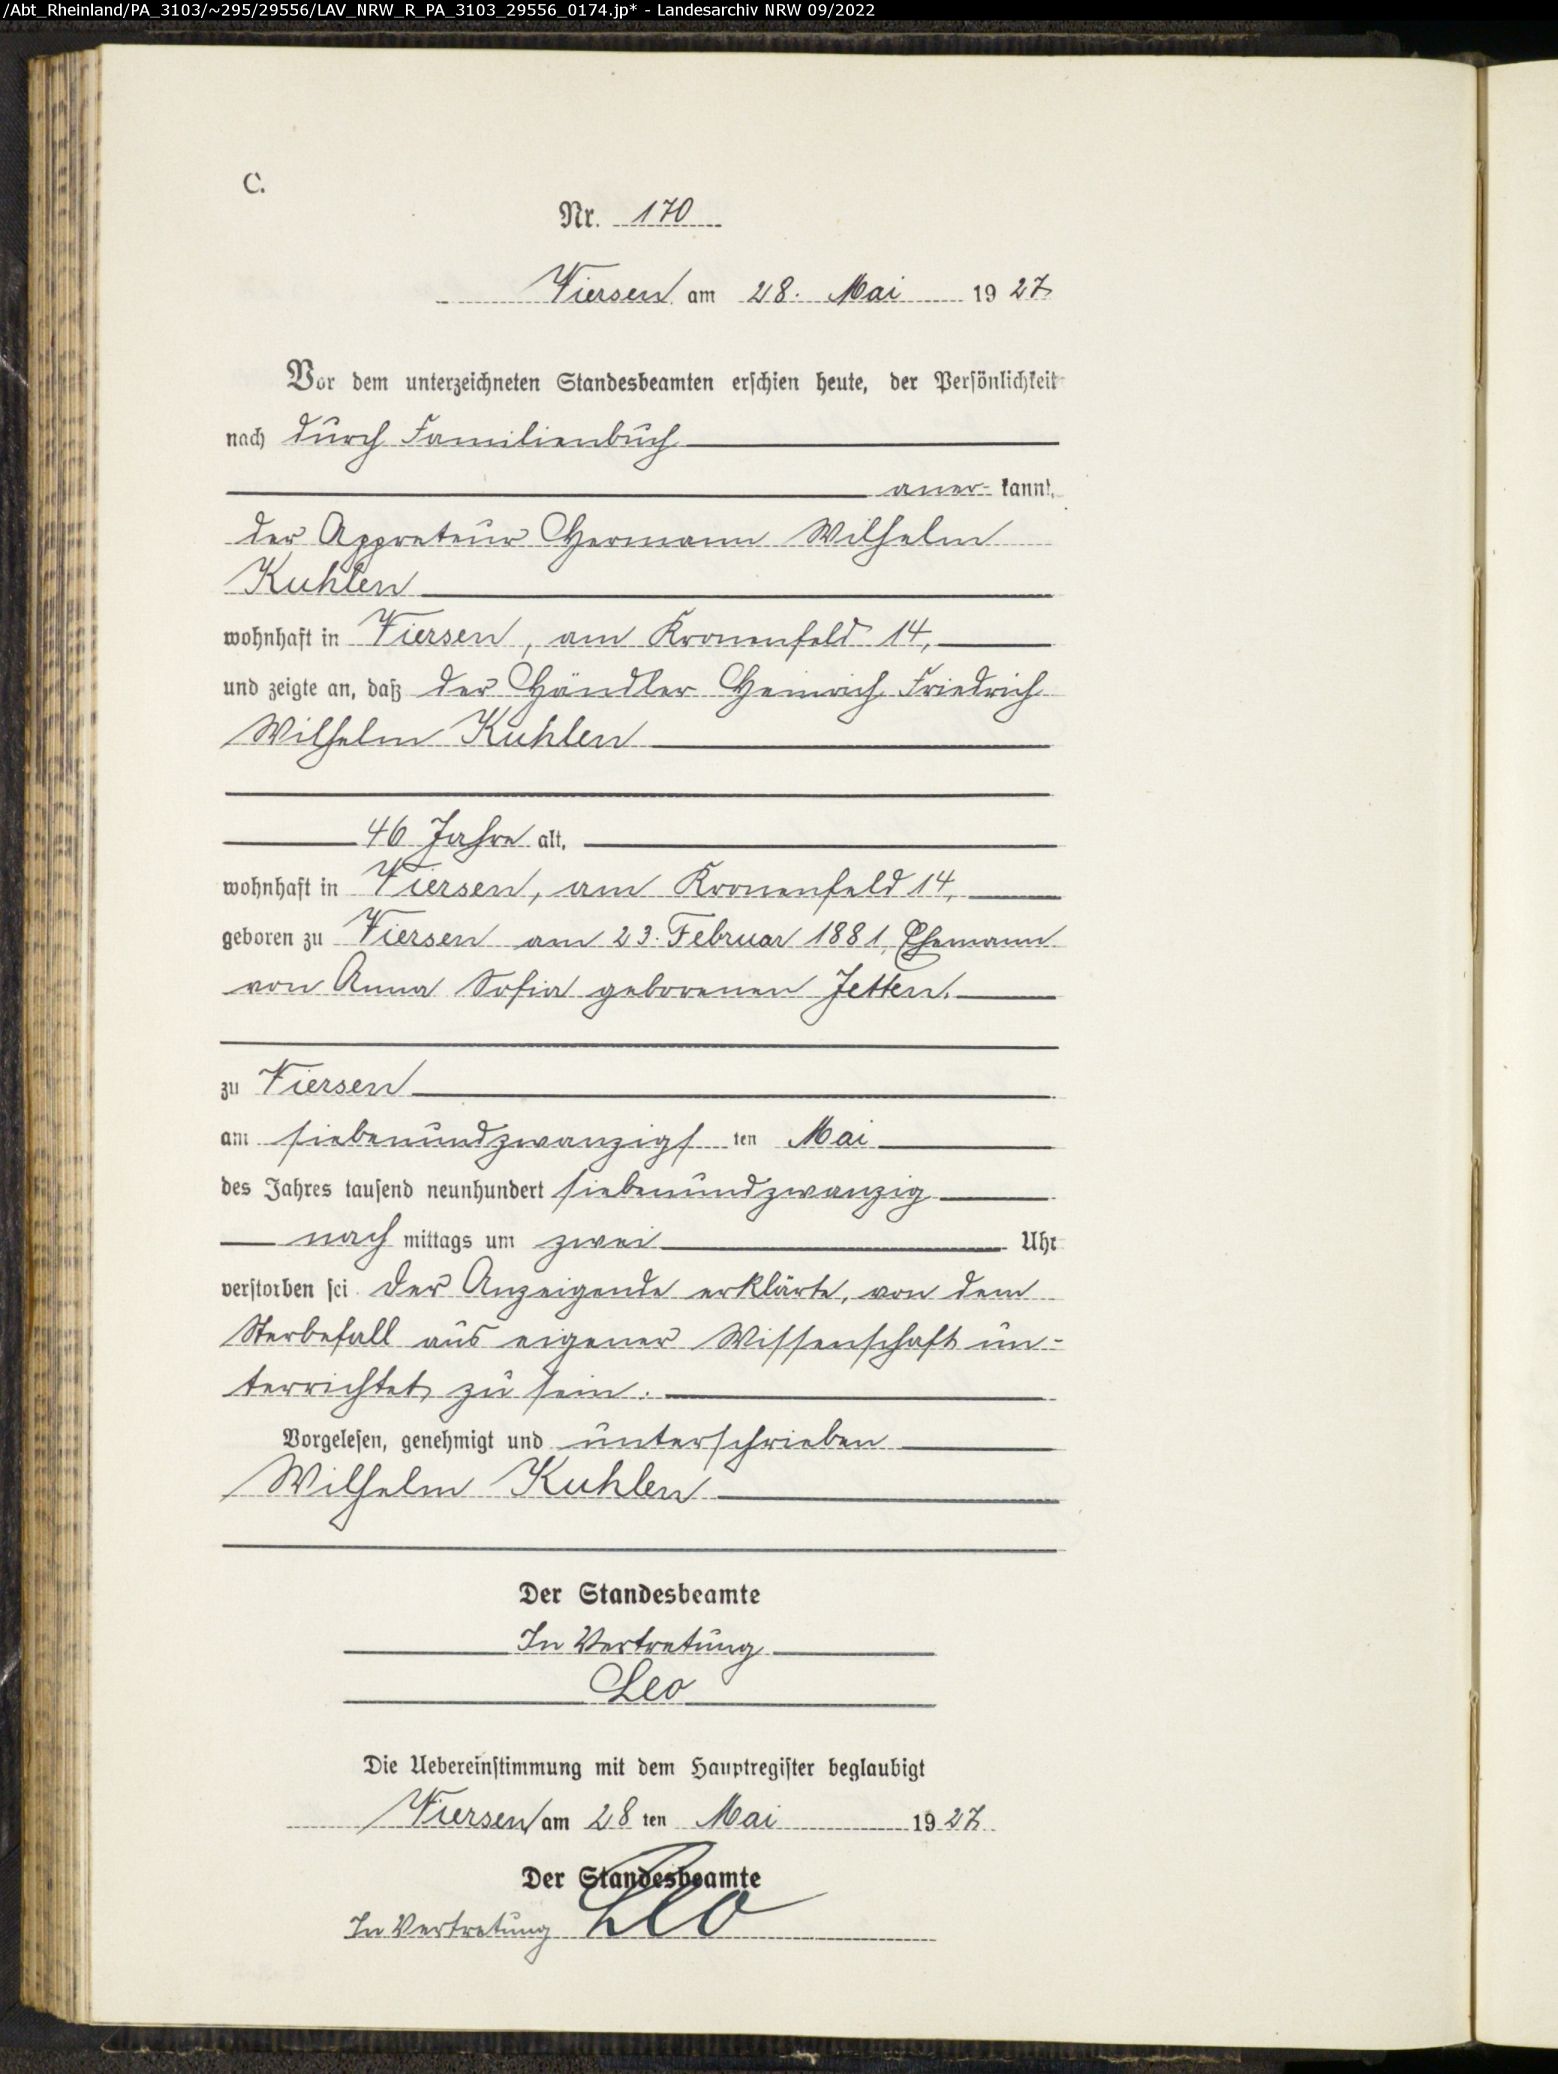 /Abt_Rheinland/PA_3103/~295/29556/LAV_NRW_R_PA_3103_29556_0174.jp* - Landesarchiv NRW 09/2022
C.
Nr. 170
Viersen am 28. Mai 1927
Vor dem unterzeichneten Standesbeamten erschien heute, der Persönlichkeit
nach durch Familienbuch
aner- kannt,
der Appreteur Hermann Wilhelm
Kuhlen
wohnhaft in Viersen, am Kronenfeld 14,
und zeigte an, daß der Händler Heinrich Friedrich
Wilhelm Kuhlen
46 Jahre alt,
wohnhaft in Viersen, am Kronenfeld 14,
geboren zu Viersen am 23. Februar 1881, Ehemann
von Anna Sofia geborenen Jetten.
zu Viersen
am siebenundzwanzigs ten Mai
des Jahres tausend neunhundert siebenundzwanzig
nach mittags um zwei Uhr
verstorben sei. Der Anzeigende erklärte, von dem
Sterbefall aus eigener Wissenschaft un-
terrichtet zu sein.
Vorgelesen, genehmigt und unterschrieben
Wilhelm Kuhlen
Der Standesbeamte
In Vertretung
Leo
Die Uebereinstimmung mit dem Hauptregister beglaubigt
Viersen am 28 ten Mai 1927
Der Standesbeamte
In Vertretung Leo